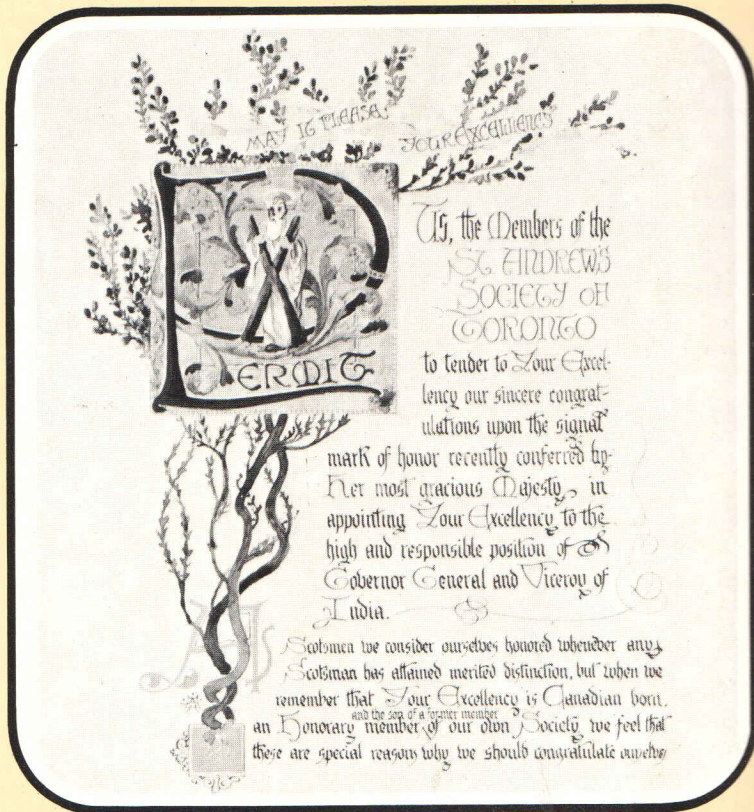 MAY IT PLEASE YOUR EXCELLENCY
PERMIT
US, the Members of the
ST ANDREW'S
SOCIETY OF
TORONTO
to tender to Your Excel-
lency our sincere congrat-
ulations upon the signal
mark of honor recently conferred by
Her most gracious Majesty, in
appointing Your Excellency to the
high and responsible position of
Governor General and Viceroy of
India.
As
Scotsmen we consider ourselves honored whenever any
Scotsman has attained merited distinction, but when we
remember that Your Excellency is Canadian born,
and the son of a former member
an Honorary member of our own Society we feel that
these are special reasons why we should congratulate ourselves